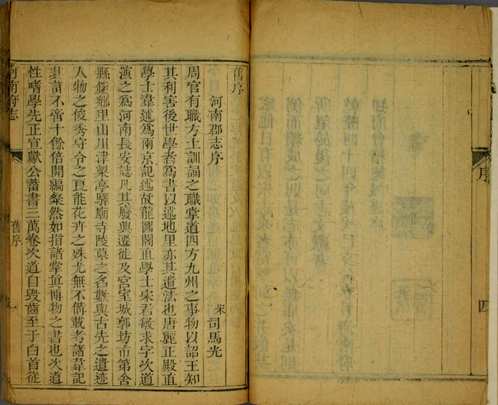 序
四
舊序
河南郡志序
宋 司馬光
周官有職方土訓誦訓之職掌道四方九州之事物以詔王知
其利害後世學者為書以述地里亦其遺法也唐麗正殿直
學士韋述為西京記近故龍圖閣直學士宋君敏求字次道
演之為河南長安志凡其廢興遷徙及宮室城郭坊市第舍
縣鎮鄉里山川津梁亭驛廟寺陵墓之名數與古先之遺迹
人物之俊秀守令之良能花卉之殊尤無不備載考諸韋記
其詳不啻十餘倍開編粲然如指諸掌真博物之書也次道
性嗜學先正宣獻公蓄書三萬卷次道自毀齒至于白首從
河南府志
舊序
一